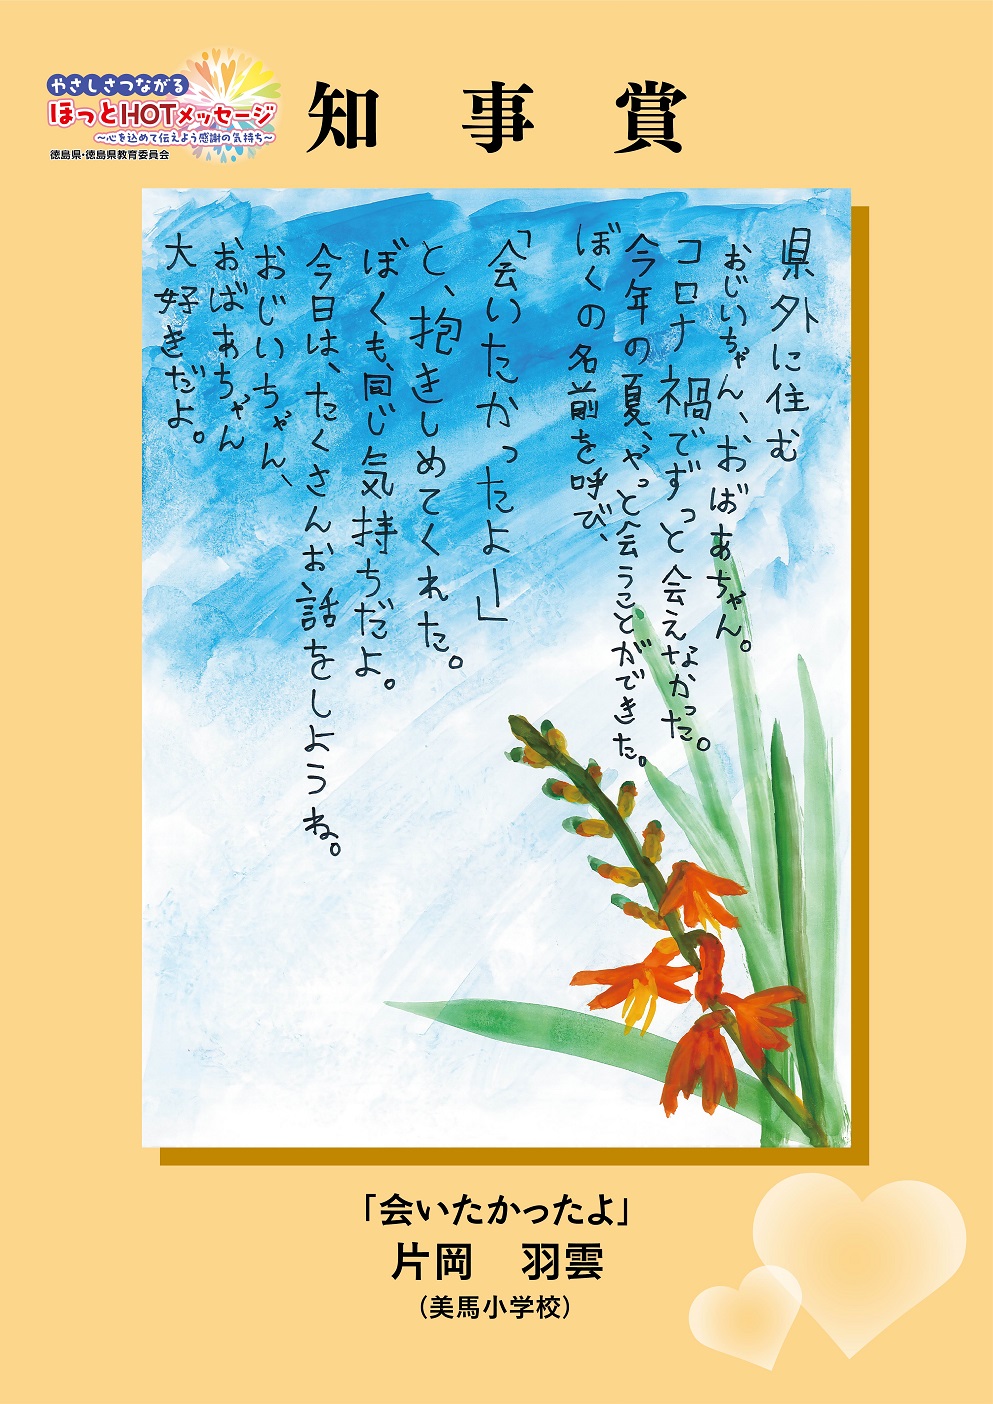 やさしさつながる
ほっとHOTメッセージ
~心を込めて伝えよう感謝の気持ち~
徳島県・徳島県教育委員会
知事賞
県外に住む
おじいちゃん、おばあちゃん。
コロナ禍でずっと会えなかった。
今年の夏、やっと会うことができた。
ぼくの名前を呼び、
「会いたかったよー」
と、抱きしめてくれた。
ぼくも、同じ気持ちだよ。
今日は、たくさんお話をしようね。
おじいちゃん、
おばあちゃん
大好きだよ。
「会いたかったよ」
片岡 羽雲
(美馬小学校)